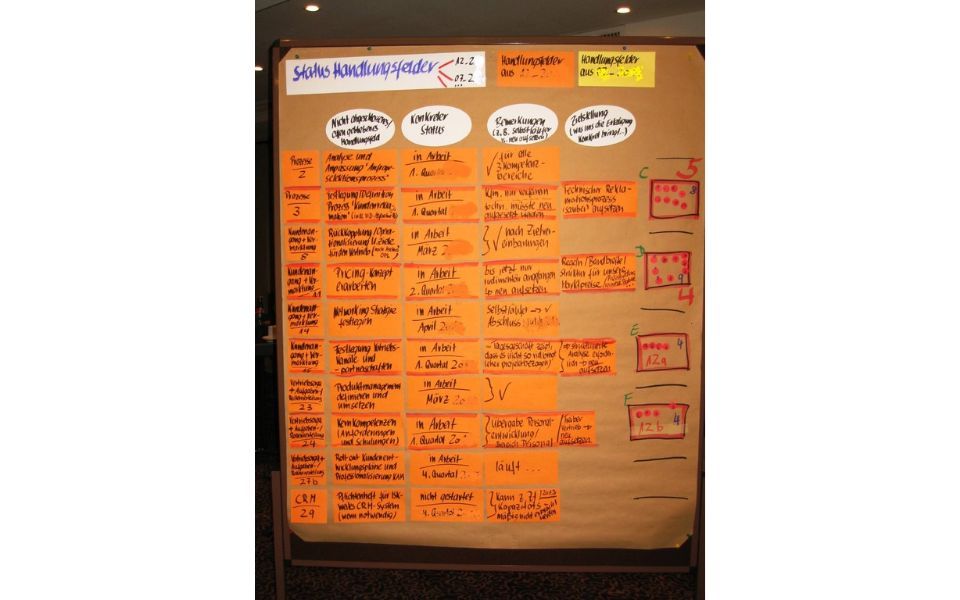 Status Handlungsfelder
12.2
07.2
...
Handlungsfelder
aus
Handlungsfelder
aus
Nicht abgeschlossenes/
offen gebliebenes
Handlungsfeld
Konkreter
Status
Bemerkungen
(z.B. Selbstläufer
Zielstellung
(was uns die Erledigung
konkret bringt...)
Prozesse
2
Analyse und
Anpassung "Anfrage-
selektionsprozess"
in Arbeit
1. Quartal
✓ für alle
3 Kompetenz-
bereiche
5
Prozesse
3
Festlegung/Definition
Prozess "Kundenrekla-
mation"
in Arbeit
1. Quartal
techn. müsste neu
aufgesetzt werden
Technischer Rekla-
mationsprozess
sauber aufsetzen
C
8
Kundenan-
gang + Ver-
marktung
Rückkopplung/
für den Vertrieb
in Arbeit
März 2
✓ nach Zielver-
einbarungen
Kundenan-
gang + Ver-
marktung
11
Pricing-Konzept
erarbeiten
in Arbeit
2. Quartal
bis jetzt nur
rudimentär angefangen
neu aufsetzen
Regeln/Bandbreite/
Struktur für unsere
Marktpreise
D
9
4
Kundenan-
gang + Ver-
marktung
14
Networking Strategie
festlegen
in Arbeit
April 20
Selbstläufer → ✓
Abschluss
Kundenan-
gang + Ver-
marktung
Festlegung Vertriebs-
kanäle und
-partnerschaften
in Arbeit
1. Quartal 20
→ strukturierte
Analyse
→ neu
aufsetzen
E
4
12a
Vertriebsorga
+ Aufgaben-/
23
Produktmanagement
definieren und
umsetzen
in Arbeit
März 20
✓
Vertriebsorga
+ Aufgaben-/
24
Kernkompetenzen
(Anforderungen
und Schulungen)
in Arbeit
1. Quartal 20
Übergabe Personal-
entwicklung/
Bereich Personal
neu
aufsetzen
F
4
12b
Vertriebsorga
+ Aufgaben-/
27b
Roll out Kundenent-
wicklungspläne und
Professionalisierung KAM
in Arbeit
4. Quartal 2
läuft ...
CRM
29
Pflichtenheft für
CRM-System
(wenn notwendig)
nicht gestartet
4. Quartal 2
Kann z.Zt.
Kapazitäts-
mäßig nicht
werden